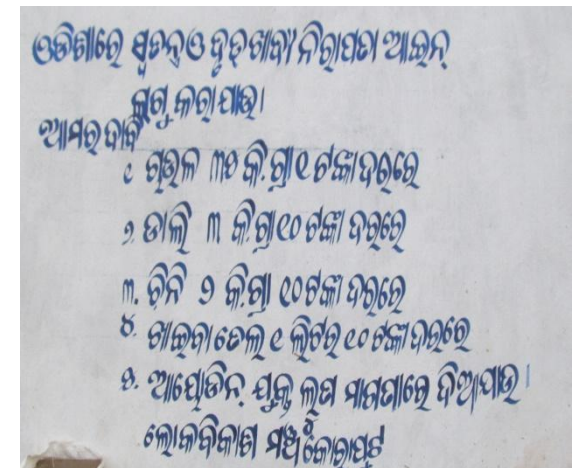 ଓଡିଶାରେ ସ୍ୱତନ୍ତ୍ର ଓ ଦୃଢ଼ ଖାଦ୍ୟ ନିରାପତା ଆଇନ୍
ଲାଗୁ କରାଯାଉ।
ଆମର ଦାବି
୧ ଚାଉଳ ୩୫ କି.ଗ୍ରା ୧ ଟଙ୍କା ଦରରେ
୨. ଡାଲି ୩ କି.ଗ୍ରା ୧୦ ଟଙ୍କା ଦରରେ
୩. ଚିନି ୨ କି.ଗ୍ରା ୧୦ ଟଙ୍କା ଦରରେ
୪. ଖାଇବା ତେଲ ୧ ଲିଟର ୧୦ ଟଙ୍କା ଦରରେ
୫. ଆୟୋଡିନ୍ ଯୁକ୍ତ ଲୁଣ ମାଗଣାରେ ଦିଆଯାଉ।
ଲୋକବିକାଶ ମଞ୍ଚ କୋରାପୁଟ